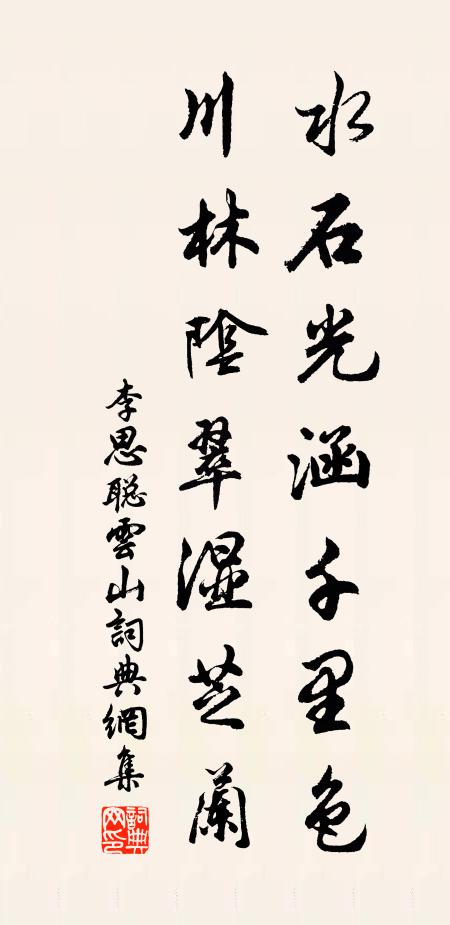 水石光涵千里色
川林陰翠濕芝蘭
李思聪雲山詞典網集
詞典網印